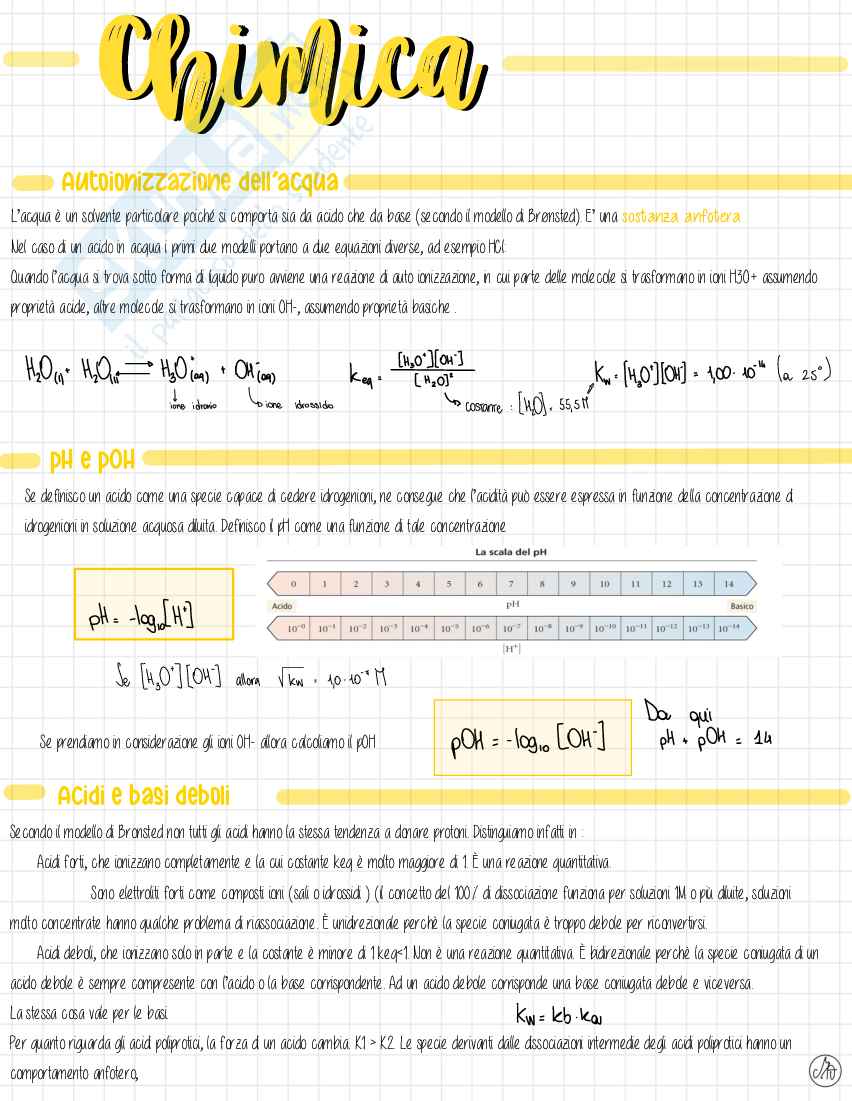 Chimica
Autoionizzazione dell'acqua
L'acqua è un solvente particolare poiché si comporta sia da acido che da base (secondo il modello di Brønsted). E' una sostanza anfotera
Nel caso di un acido in acqua i primi due modelli portano a due equazioni diverse, ad esempio HCl:
Quando l'acqua si trova sotto forma di liquido puro avviene una reazione di auto ionizzazione, in cui parte delle molecole si trasformano in ioni H3O+ assumendo
proprietà acide, altre molecole si trasformano in ioni OH-, assumendo proprietà basiche .
H₂O(l) + H₂O(l) ⇌ H₃O⁺(aq) + OH⁻(aq)
ione idronio
ione idrossido
keq = [H₃O⁺][OH⁻] / [H₂O]²
costante : [H₂O] = 55,5 M
Kw = [H₃O⁺][OH⁻] = 1,00 · 10⁻¹⁴ (a 25°)
pH e pOH
Se definisco un acido come una specie capace di cedere idrogenioni, ne consegue che l'acidità può essere espressa in funzione della concentrazione di
idrogenioni in soluzione acquosa diluita. Definisco il pH come una funzione di tale concentrazione
La scala del pH
0 1 2 3 4 5 6 7 8 9 10 11 12 13 14
Acido pH Basico
10⁻⁰ 10⁻¹ 10⁻² 10⁻³ 10⁻⁴ 10⁻⁵ 10⁻⁶ 10⁻⁷ 10⁻⁸ 10⁻⁹ 10⁻¹⁰ 10⁻¹¹ 10⁻¹² 10⁻¹³ 10⁻¹⁴
[H⁺]
pH = -log₁₀[H⁺]
Se [H₃O⁺][OH⁻] allora √kw = 1,0 · 10⁻⁷ M
Se prendiamo in considerazione gli ioni OH- allora calcoliamo il pOH
pOH = -log₁₀ [OH⁻]
Da qui
pH + pOH = 14
Acidi e basi deboli
Secondo il modello di Bronsted non tutti gli acidi hanno la stessa tendenza a donare protoni. Distinguiamo infatti in :
Acidi forti, che ionizzano completamente e la cui costante keq è molto maggiore di 1. È una reazione quantitativa.
Sono elettroliti forti come composti ioni (sali o idrossidi ) (il concetto del 100% di dissociazione funziona per soluzioni 1M o più diluite, soluzioni
molto concentrate hanno qualche problema di riassociazione. È unidirezionale perchè la specie coniugata è troppo debole per riconvertirsi.
Acidi deboli, che ionizzano solo in parte e la costante è minore di 1 keq<1. Non è una reazione quantitativa. È bidirezionale perchè la specie coniugata di un
acido debole è sempre compresente con l'acido o la base corrispondente. Ad un acido debole corrisponde una base coniugata debole e viceversa.
La stessa cosa vale per le basi.
Kw = kb · ka
Per quanto riguarda gli acidi poliprotici, la forza di un acido cambia. K1 > K2. Le specie derivanti dalle dissociazioni intermedie degli acidi poliprotici hanno un
comportamento anfotero,